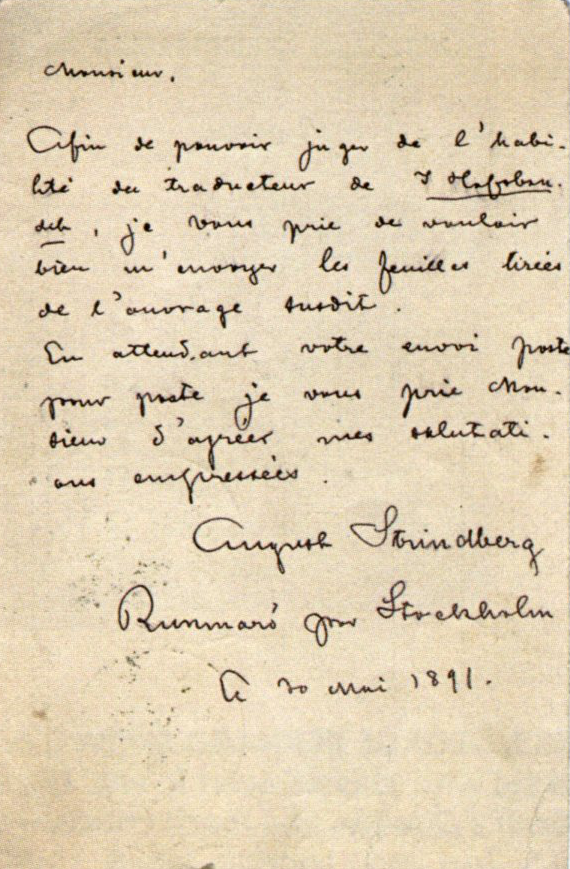 Monsieur,
Afin de pouvoir juger de l'habi-
lité du traducteur de I Hafsban-
det, je vous prie de vouloir
bien m'envoyer les feuilles tirées
de l'ouvrage susdit.
En attendant votre envoi poste
pour poste je vous prie Mon-
sieur d'agréer mes salutati-
ons empressées.
August Strindberg
Runmarö par Stockholm
le 30 Mai 1891.